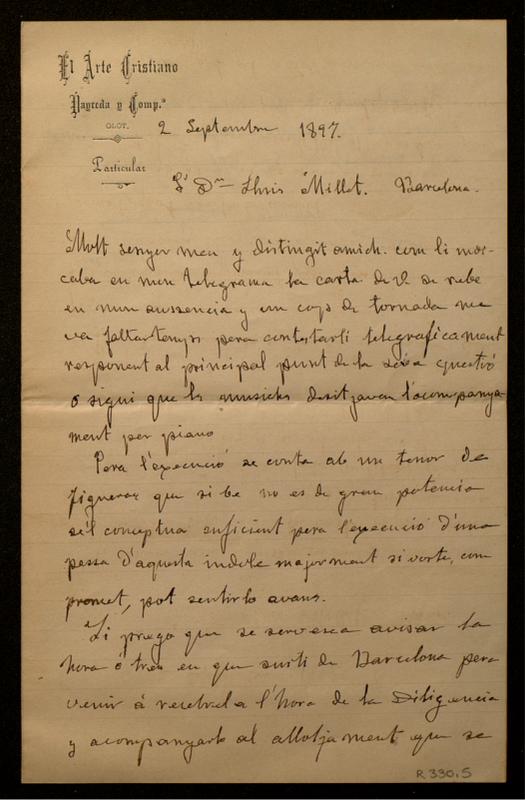 El Arte Cristiano
Vayreda y Comp.ª
OLOT.
2 Septembre 1897.
Particular
Sr Dn Lluis Millet. Barcelona.
Molt senyor meu y distingit amich. com li mar-
caba en mon telegrama la carta de V. se rebe
en mon aussencia y un cop de tornada me
va faltar temps pera contestarli telegraficament
responent al principal punt de la seva questió
o sigui que los musichs desitjaven l'acompanya-
ment per piano
Pera l'execució se conta ab un tenor de
Figueras que si be no es de gran potencia
se'l conceptua suficient pera l'execució d'una
pessa d'aquesta indole majorment si vosté, com
promet, pot sentirlo avans.
Li prego que se servesca avisar la
hora ó tren en que surti de Barcelona pera
venir á rebrel a l'hora de la Diligencia
y acompanyarlo al allotjament que se
R.330.5